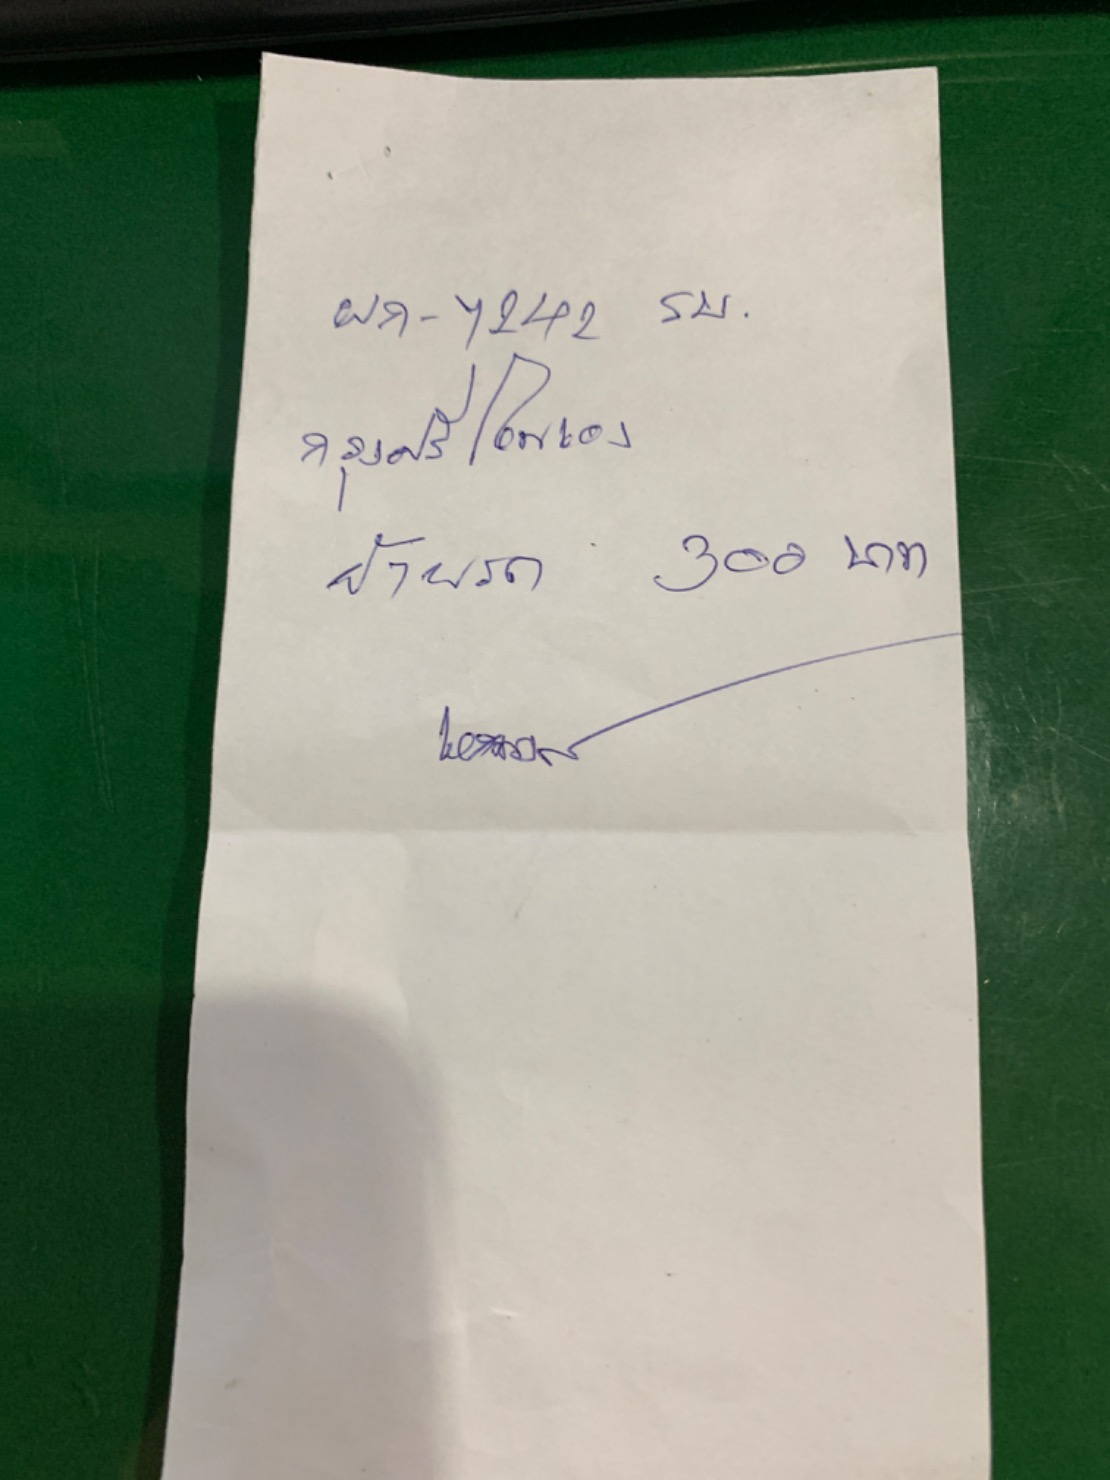 ผก-7242 รบ.
กรุงศรี/โตนเอง
ย้ายรถ 300 บาท